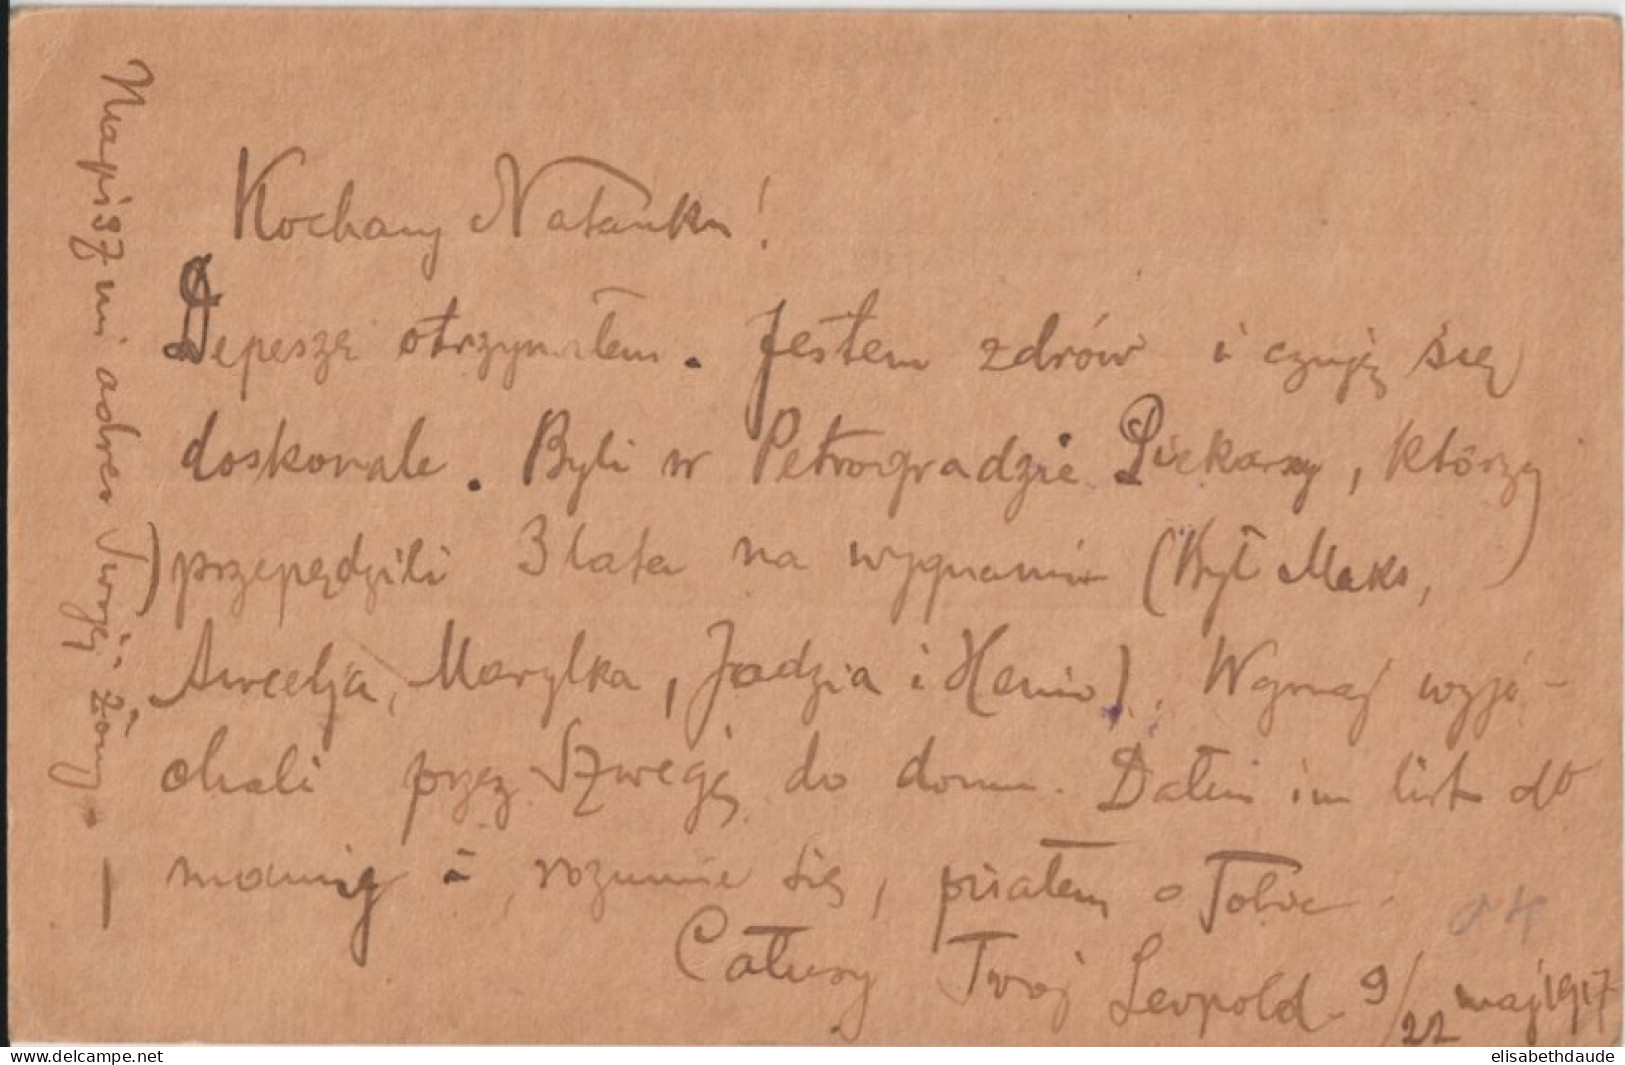 Kochany Natanku!
Depeszę otrzymałem. Jestem zdrów i czuję się
doskonale. Byli w Petrogradzie Piekarzy, którzy
przepędzili 3 lata na wygnaniu (Był Maks,
Amelja, Marylka, Jadzia i Henio). Wczoraj wyje-
chali przez Szwecję do domu. Dałem im list do
mamy i, rozumie się, pisałem o Tobie.
Całusy Twój Leopold. 9/22 maj 1917
Napisz mi adres Twojej żony.
www.delcampe.net
elisabethdaude